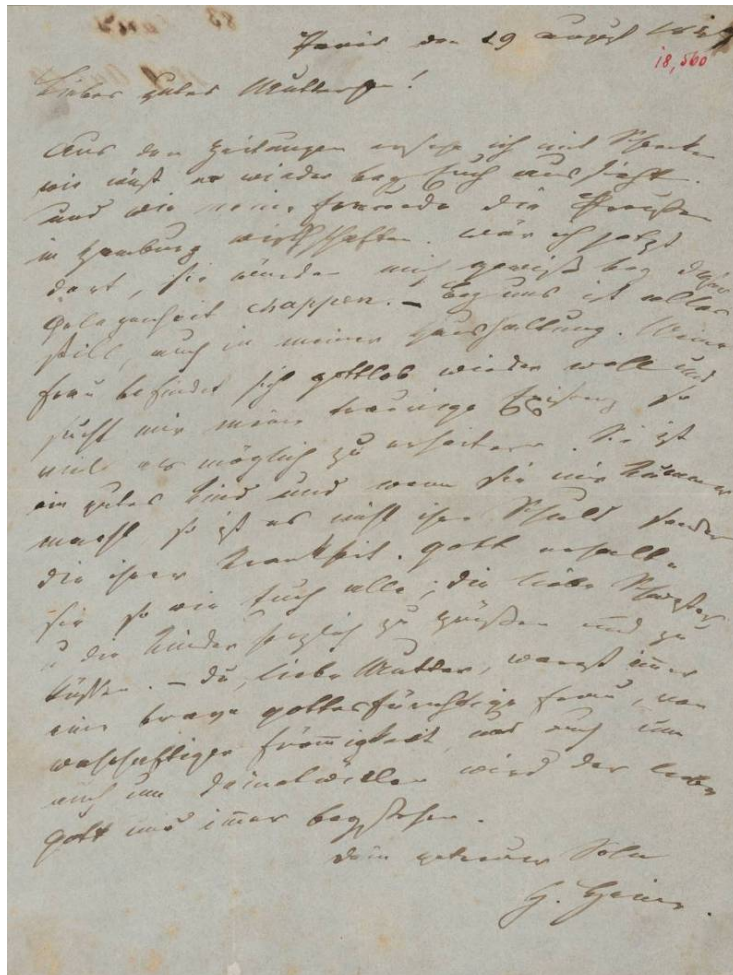 Paris den 29 August
18,560
Liebes gutes Mütterchen!
Aus den Zeitungen ersehe ich mit Schrecken
wie wüst es wieder bey Euch aussieht
und wie meine Freunde die Preußen
in Hamburg wirthschaften. Wär ich jetzt
dort, sie würden mich gewiß bey dieser
Gelegenheit chappen. – Bey uns ist alles
still, auch in meiner Haushaltung. Meine
Frau befindet sich gottlob wieder wohl und
sucht mir meine traurige Existenz so
viel als möglich zu erheitern. Sie ist
ein gutes Kind und wenn sie mir Kummer
macht so ist es nicht ihre Schuld sondern
die ihrer Krankheit. Gott erhalte
sie so wie Euch alle; die liebe Schwester
u die Kinder herzlich zu grüßen und zu
küssen. – Du, liebe Mutter, warest immer
eine brave gottesfürchtige Frau, von
wahrhaftiger Frömmigkeit, und auch um
auch um deinetwillen wird der liebe
Gott uns immer beystehen.
Dein getreuer Sohn
H. Heine.